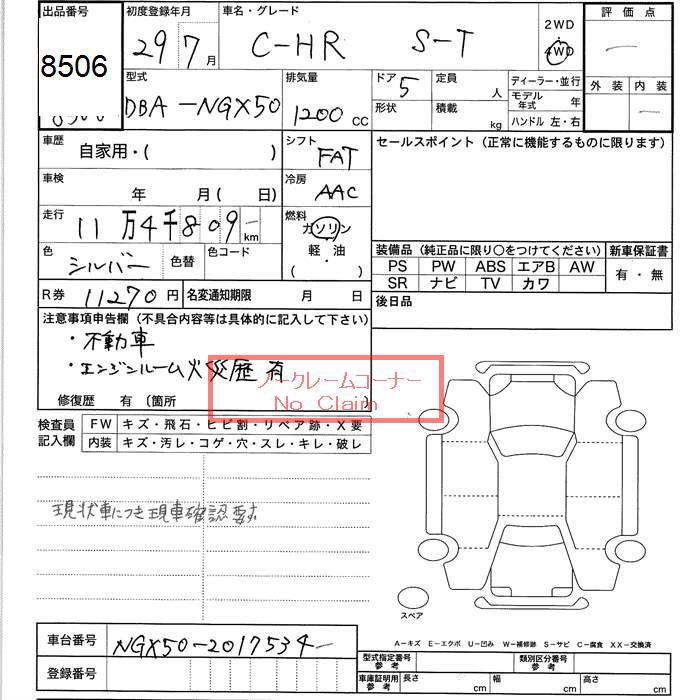 出品番号 初度登録年月 車名・グレード 2WD 評価点
8506 29 7月 C-HR S-T 4WD —
外装 内装
型式 排気量 ドア 5 定員 人 ディーラー・並行
DBA-NGX50 1200 CC 形状 積載 kg モデル年式 年
ハンドル 左・右 —
車歴 自家用・( ) シフト FAT セールスポイント(正常に機能するものに限ります)
車検 年 月( 日) 冷房 AAC
走行 11万4千809- km 燃料 ガソリン
色 シルバー 色替 色コード 軽・油
( )
装備品(純正品に限り○をつけてください) 新車保証書
PS PW ABS エアB AW 有・無
SR ナビ TV カワ
R券 11270円 名変通知期限 月 日 後日品
注意事項申告欄(不具合内容等は具体的に記入して下さい)
・不動車
・エンジンルーム火災歴有
ノークレームコーナー
No Claim
修復歴 有(箇所 )
検査員記入欄 FW キズ・飛石・ヒビ割・リペア跡・X要
内装 キズ・汚レ・コゲ・穴・スレ・キレ・破レ
現状車につき現車確認要す
スペア
A-キズ E-エクボ U-凹み W-補修跡 S-サビ C-腐食 XX-交換済
車台番号 NGX50-2017534-
型式指定番号 参考 類別区分番号 参考
登録番号
車庫証明用 参考 長さ cm 幅 cm 高さ cm